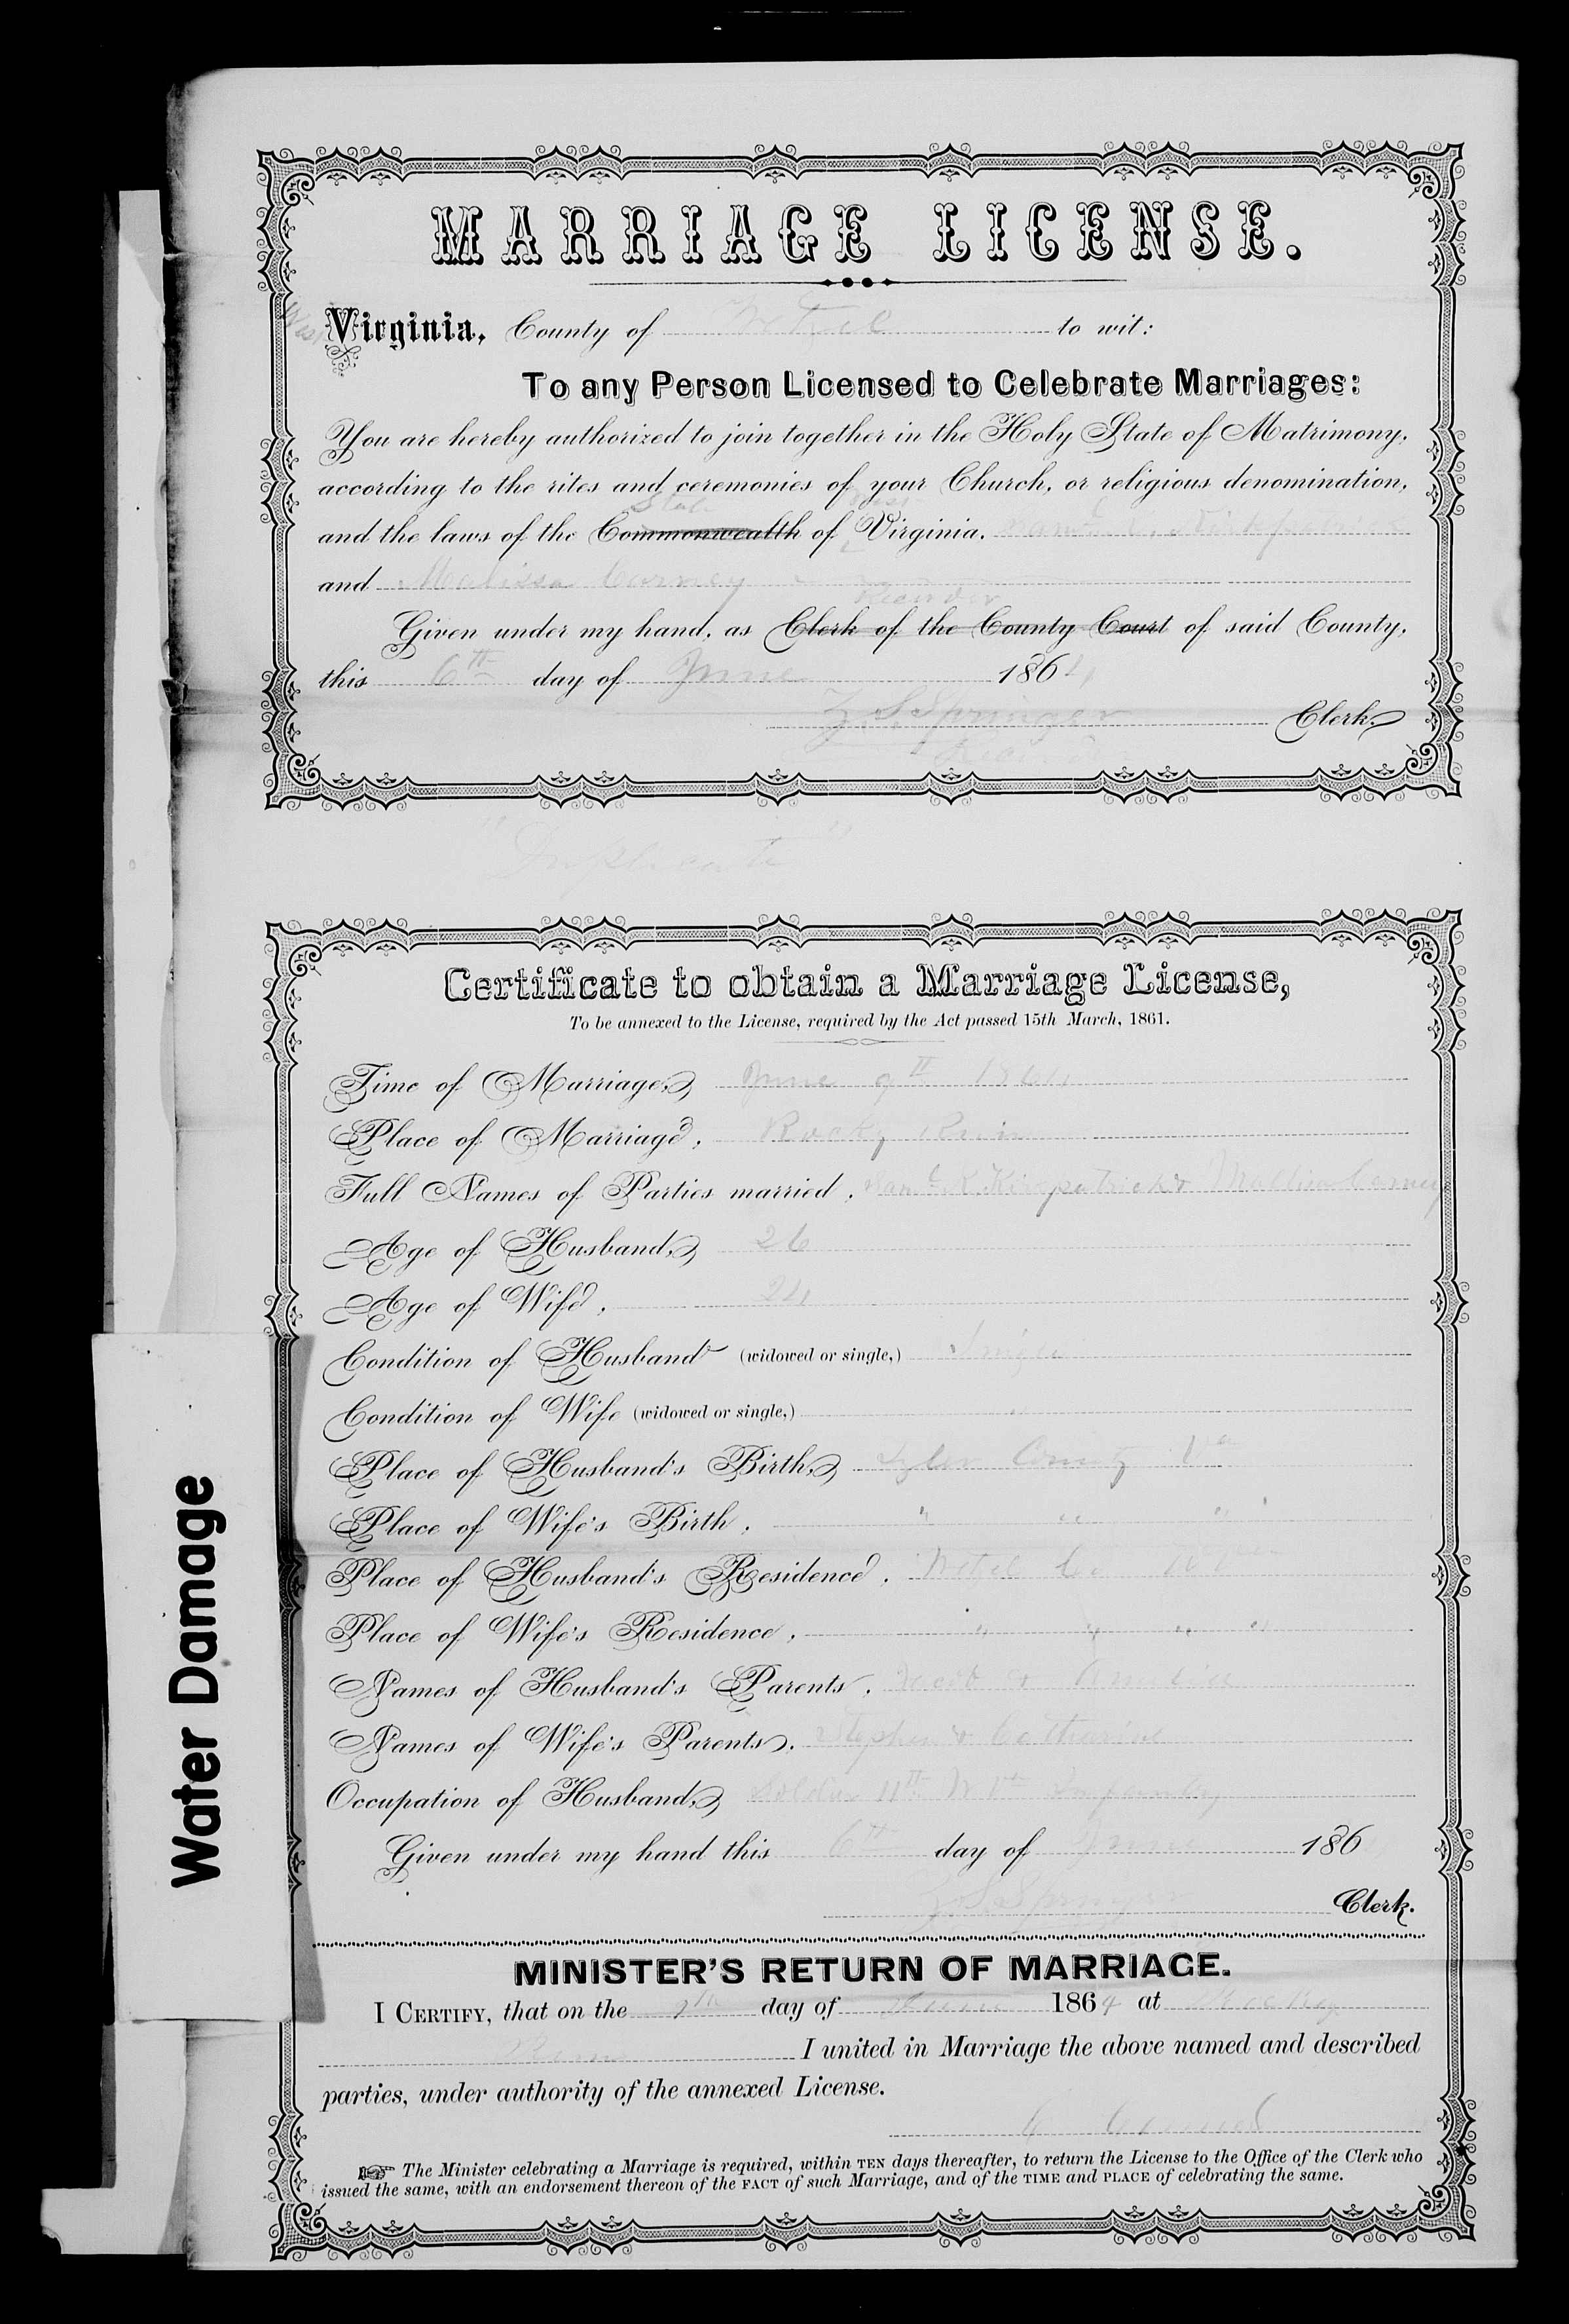 MARRIAGE LICENSE.
West Virginia, County of Wetzel to wit:
To any Person Licensed to Celebrate Marriages:
You are hereby authorized to join together in the Holy State of Matrimony,
according to the rites and ceremonies of your Church, or religious denomination,
State West
and the laws of the Commonwealth of Virginia. Saml. Kirkpatrick
and Malissa Carney
Recorder
Given under my hand, as Clerk of the County Court of said County,
this 6th day of June 1864
Z. S. Springer Clerk.
"Duplicate"
Certificate to obtain a Marriage License,
To be annexed to the License, required by the Act passed 15th March, 1861.
Time of Marriage, June 9th 1864
Place of Marriage, Rocky Run
Full Names of Parties married, Saml R. Kirkpatrick &
Age of Husband, 26
Age of Wife, 24
Condition of Husband (widowed or single,) Single
Condition of Wife (widowed or single,) "
Place of Husband's Birth, Tyler County Va
Place of Wife's Birth, " " "
Place of Husband's Residence, Wetzel Co
Place of Wife's Residence, " " " "
Names of Husband's Parents, &
Names of Wife's Parents, Stephen & Catharine
Occupation of Husband, Soldier 11th Infantry
Given under my hand this 6th day of June 186
Z. S. Springer Clerk.
MINISTER'S RETURN OF MARRIAGE.
I CERTIFY, that on the day of June 1864 at Rocky
Run I united in Marriage the above named and described
parties, under authority of the annexed License.
☞ The Minister celebrating a Marriage is required, within TEN days thereafter, to return the License to the Office of the Clerk who
issued the same, with an endorsement thereon of the FACT of such Marriage, and of the TIME and PLACE of celebrating the same.
Water Damage